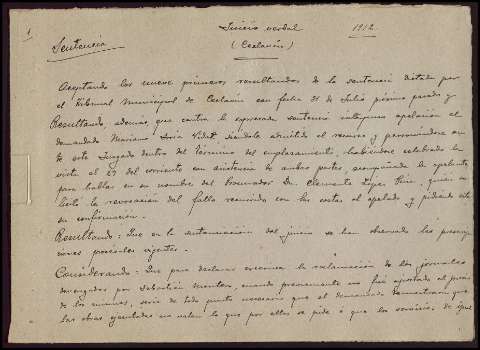 1
Juicio verbal 1912
Sentencia (Ceclavín)
Aceptando los nueve primeros resultandos de la sentencia dictada por
el Tribunal Municipal de Ceclavín con fecha 31 de Julio próximo pasado y
Resultando, además, que contra la expresada sentencia interpuso apelación el
demandado Mariano admitido el recurso y personándose an
te este Juzgado dentro del término del emplazamiento, habiéndose celebrado la
vista el 27 del corriente con asistencia de ambas partes, acompañada la apelante
para hablar en su nombre del Procurador Dn. Clemente López quién so
licitó la revocación del fallo recurrido con las costas al apelado y pidiendo éste
su confirmación.
Resultando: Que en la sustanciación del juicio se han observado las prescrip
ciones procesales vigentes.
Considerando: Que para declarar excesiva la reclamación de los jornales
devengados por Sebastián Montero, cuando previamente no fué ajustado el precio
de los mismos, sería de todo punto necesario que el demandado demostrara que
las obras ejecutadas no valen lo que por ellas se pide ó que los servicios, de igual